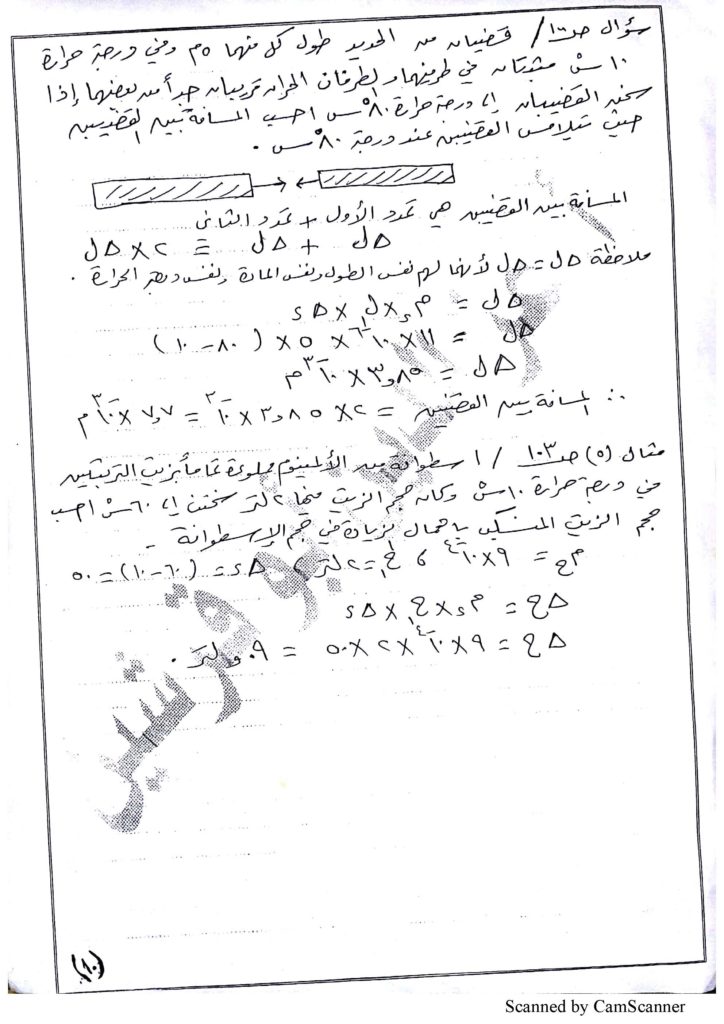 سؤال صـ / قضيبان من الحديد طول كل منهما ٥م وفي درجة حرارة
١٠ْس مثبتان في طرفيهما والطرفان الحران قريبان جداً من بعضهما إذا
سخن القضيبان إلى درجة حرارة ٨٠ْس احسب المسافة بين القضيبين
حيث يتلامس القضيبين عند درجة ٨٠ْس .
المسافة بين القضيبين هي تمدد الأول + تمدد الثاني
Δل + Δل = ٢×Δل
ملاحظة Δل = Δل لأنهما لهم نفس الطول ونفس المادة ونفس درجة الحرارة .
Δل = م × ل١ × Δد
Δل = ١١×١٠⁻⁶ × ٥ × (٨٠-١٠)
Δل = ٣٫٨٥×١٠⁻³م
∴ المسافة بين القضيبين = ٢×٣٫٨٥×١٠⁻³ = ٧٫٧×١٠⁻³م
مثال (٥) صـ١٠٣ / اسطوانة من الألمنيوم مملوءة تماماً بزيت التربنتين
في درجة حرارة ١٠ْس وكان حجم الزيت فيها ٢ لتر سخنت إلى ٦٠ْس احسب
حجم الزيت المنسكب بإهمال الزيادة في حجم الإسطوانة -
مح = ٩×١٠⁻⁴ ، ح١ = ٢لتر ، Δد = (٦٠-١٠) = ٥٠
Δح = م × ح١ × Δد
Δح = ٩×١٠⁻⁴×٢×٥٠ = ٠٫٠٩ لتر .
(١٠)
Scanned by CamScanner